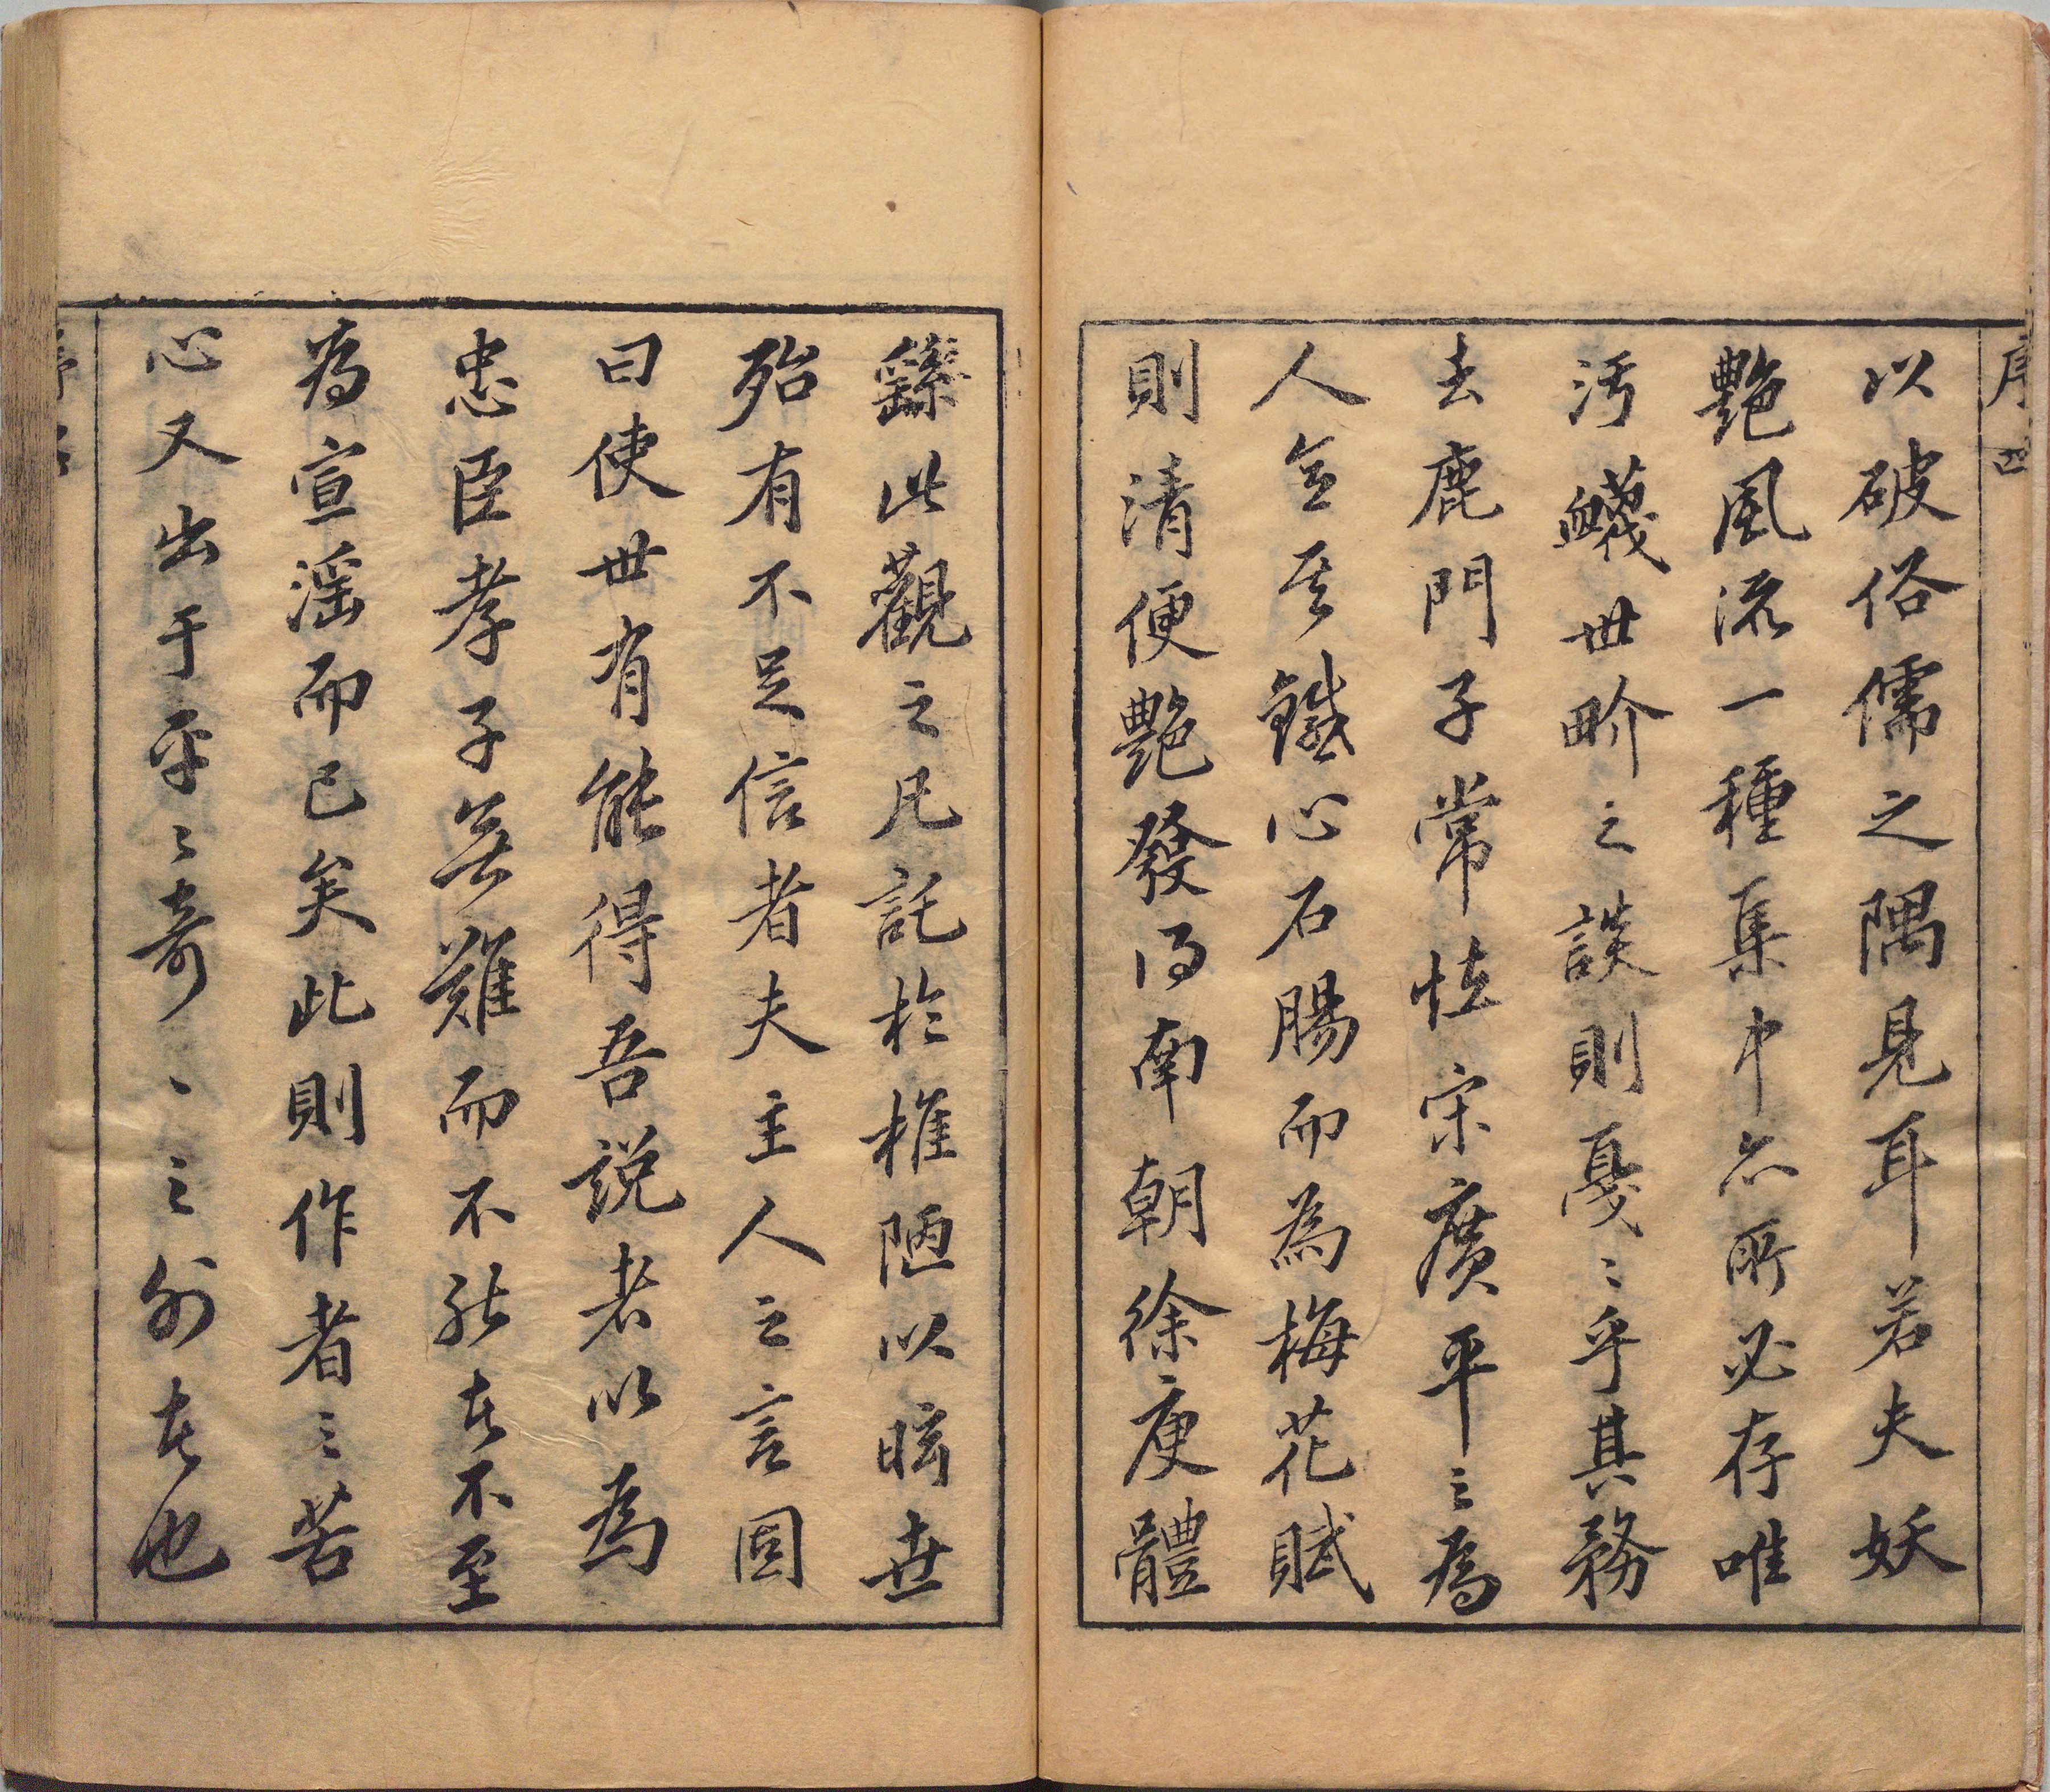 序四
以破俗儒之隅見耳若夫妖
艶風流一種集中亦所必存唯
汚衊世畍之談則戞〻乎其務
去鹿門子常恠宋廣平之為
人意其鐵心石腸而為梅花賦
則清便艶發得南朝徐庾體
繇此觀之凡託於椎陋以眩世
殆有不足信者夫主人之言固
曰使世有能得吾說者以為
忠臣孝子無難而不能者不至
為宣淫而已矣此則作者之苦
心又出于平〻奇〻之外者也